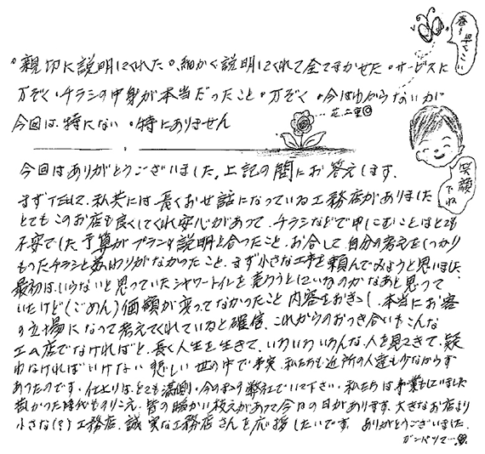 春よ来い
。親切に説明してくれた。細かく説明してくれて全てまかせた。サービスに
万ぞく・チラシの中身が本当だったこと。万ぞく。今はわからないが
今回は特にない。特にありません
笑顔でね
今回はありがとうございました。上記の間にお答えします。
まず私共には長くお世話になっている工務店がありました
とてもこのお店も良くしてくれ安心があって、チラシなどで申しこむことはとても
不安でした予算がプランや説明と合ったこと、お会して自分の考えをしっかり
もったチラシと変わりがなかったこと、まず小さな工事を頼んでみようと思いました
最初はいらないと思っていたシャワートイレを売ろうとしているのかなあと思って
いたけど(ごめん)価額が変ってなかったこと内容をおきき、本当にお客
の立場になって考えてくれていると確信、これからのおつき合いもこんな
工ム店でなければと、長く人生を生きて、いろいろな人を見てきて、疑
わなければいけない悲しい世の中で事実、私たちも近所の人達も少なからず
あったのです・仕上りは、とても満足・今のまゝの弊社でいて下さい・私たちは
昔かった時代ものりこえ、皆の暖かい支えがあって今日の日があります。大きなお店より
小さな(?)工務店、誠実な工務店さんを応援したいです ありがとうございました。
ガンバッてマース